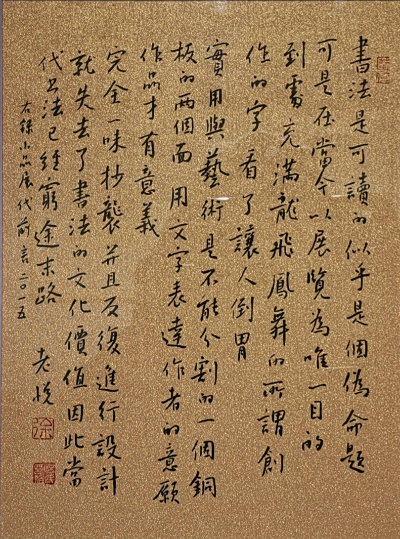 書法是可讀的似乎是個偽命題
可是在當今以展覽為唯一目的
到處充滿龍飛鳳舞的所謂創
作的字看了讓人倒胃
實用與藝術是不能分割的一個銅
板的兩個面用文字表達作者的意願
作品才有意義
完全一味抄襲并且反復進行設計
就失去了書法的文化價值因此當
代書法已經窮途末路
右錄小品展代前言二〇一五
老悅